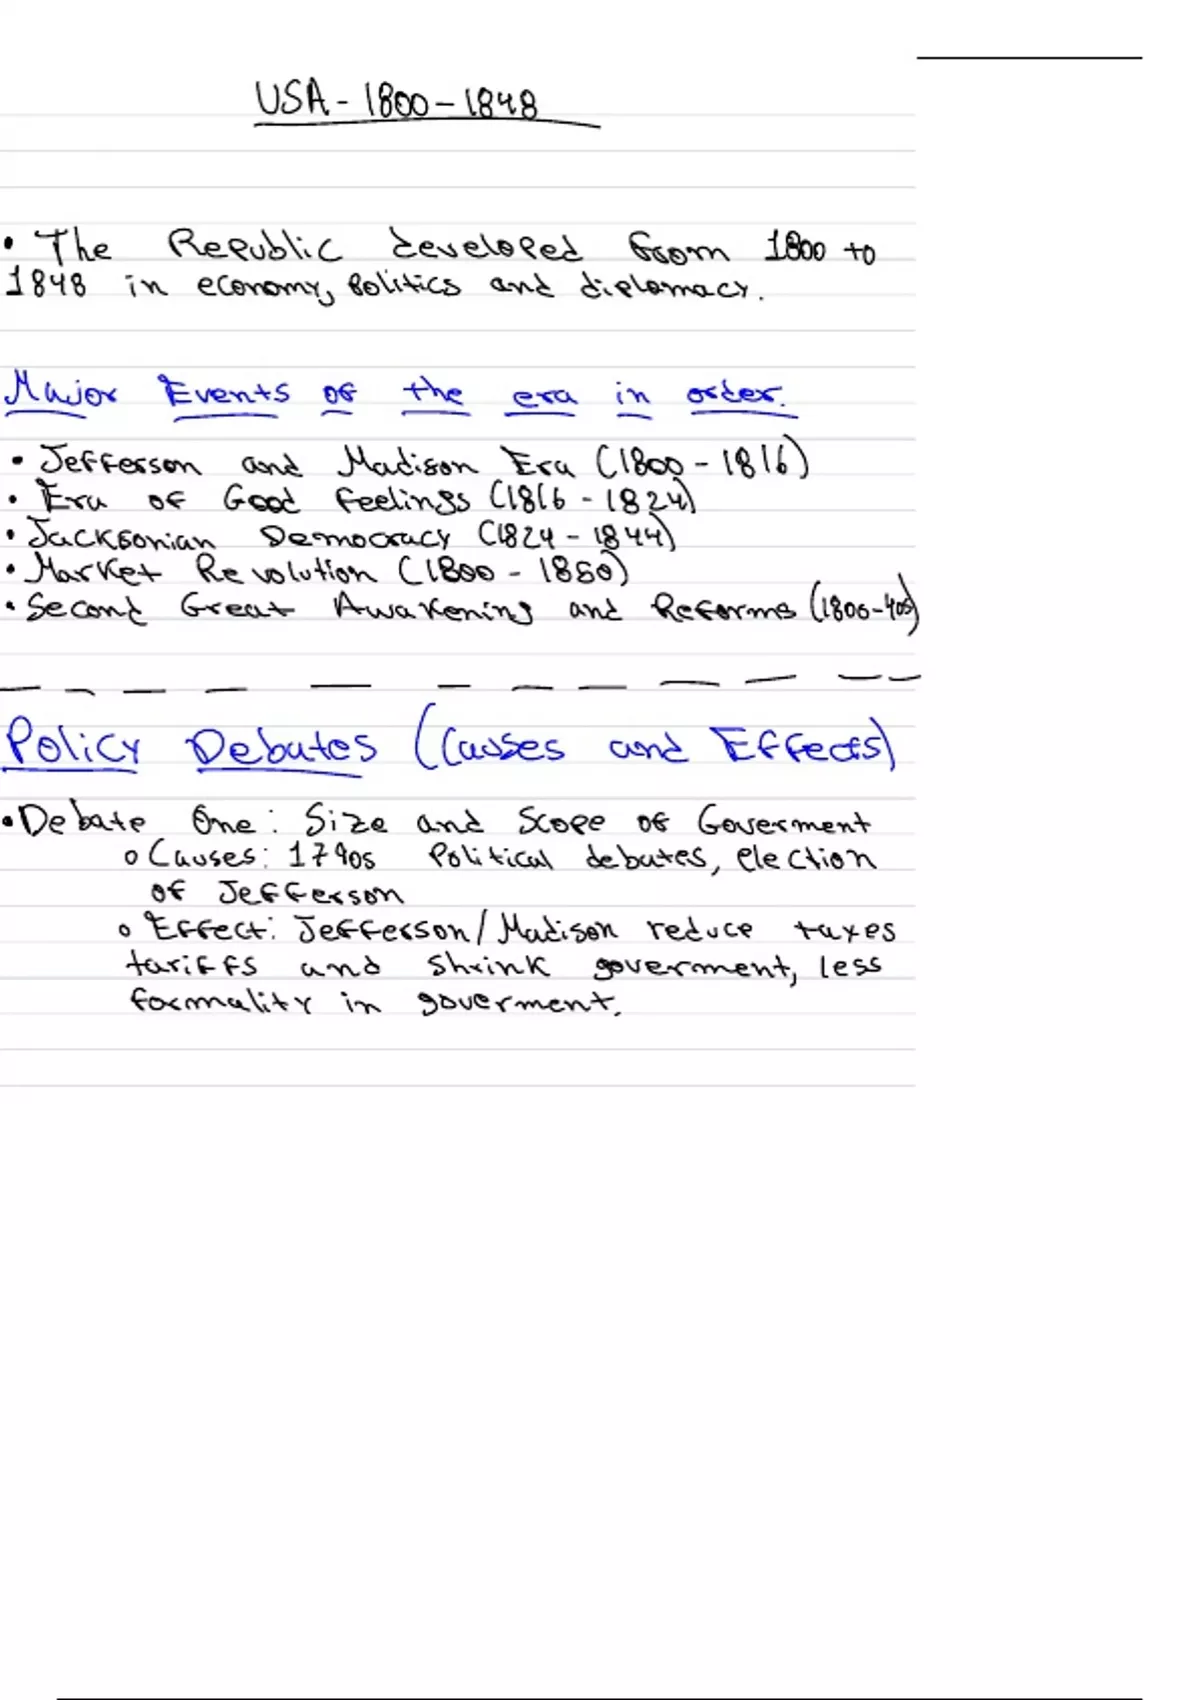 USA - 1800 - 1848
• The Republic developed from 1800 to
1848 in economy, Politics and diplomacy.
Major Events of the era in order.
• Jefferson and Madison Era (1800 - 1816)
• Era of Good feelings (1816 - 1824)
• Jacksonian Democracy (1824 - 1844)
• Market Revolution (1800 - 1860)
• Second Great Awakening and Reforms (1800-40s)
Policy Debates (Causes and Effects)
• Debate One: Size and Scope of Goverment
o Causes: 1790s Political debates, election
of Jefferson
o Effect: Jefferson/Madison reduce taxes
tariffs and shrink goverment, less
formality in goverment.